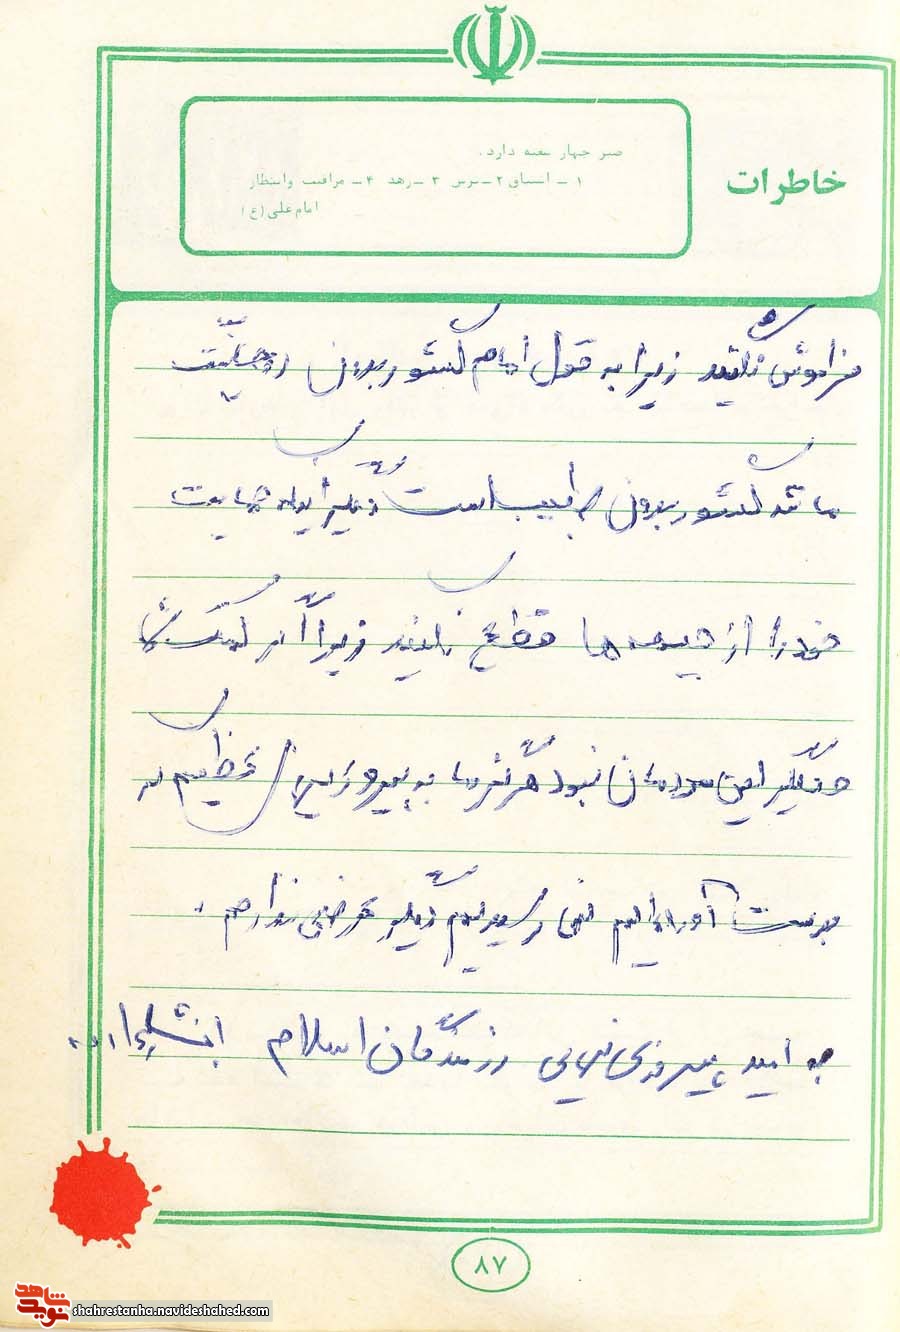 صبر چهار شعبه دارد.
خاطرات
۱ ـ اشتیاق ۲ ـ ترس ۳ ـ زهد ۴ ـ مراقبت وانتظار
امام علی (ع)
فراموش نکنید زیرا به قول امام کشور بدون روحانیت
مانند کشور بدون طبیب است دیگر اینکه حمایت
خود را از جبهه ها قطع نکنید زیرا اگر کمک شما
و دیگر این مردمان نبود هرگز ما به پیروزیهای عظیم که
بدست آورده‌ایم نمی رسیدیم دیگر عرضی ندارم .
به امید پیروزی نهایی رزمندگان اسلام انشاءالله
۸۷
نوید شاهد
shahrestanha.navideshahed.com